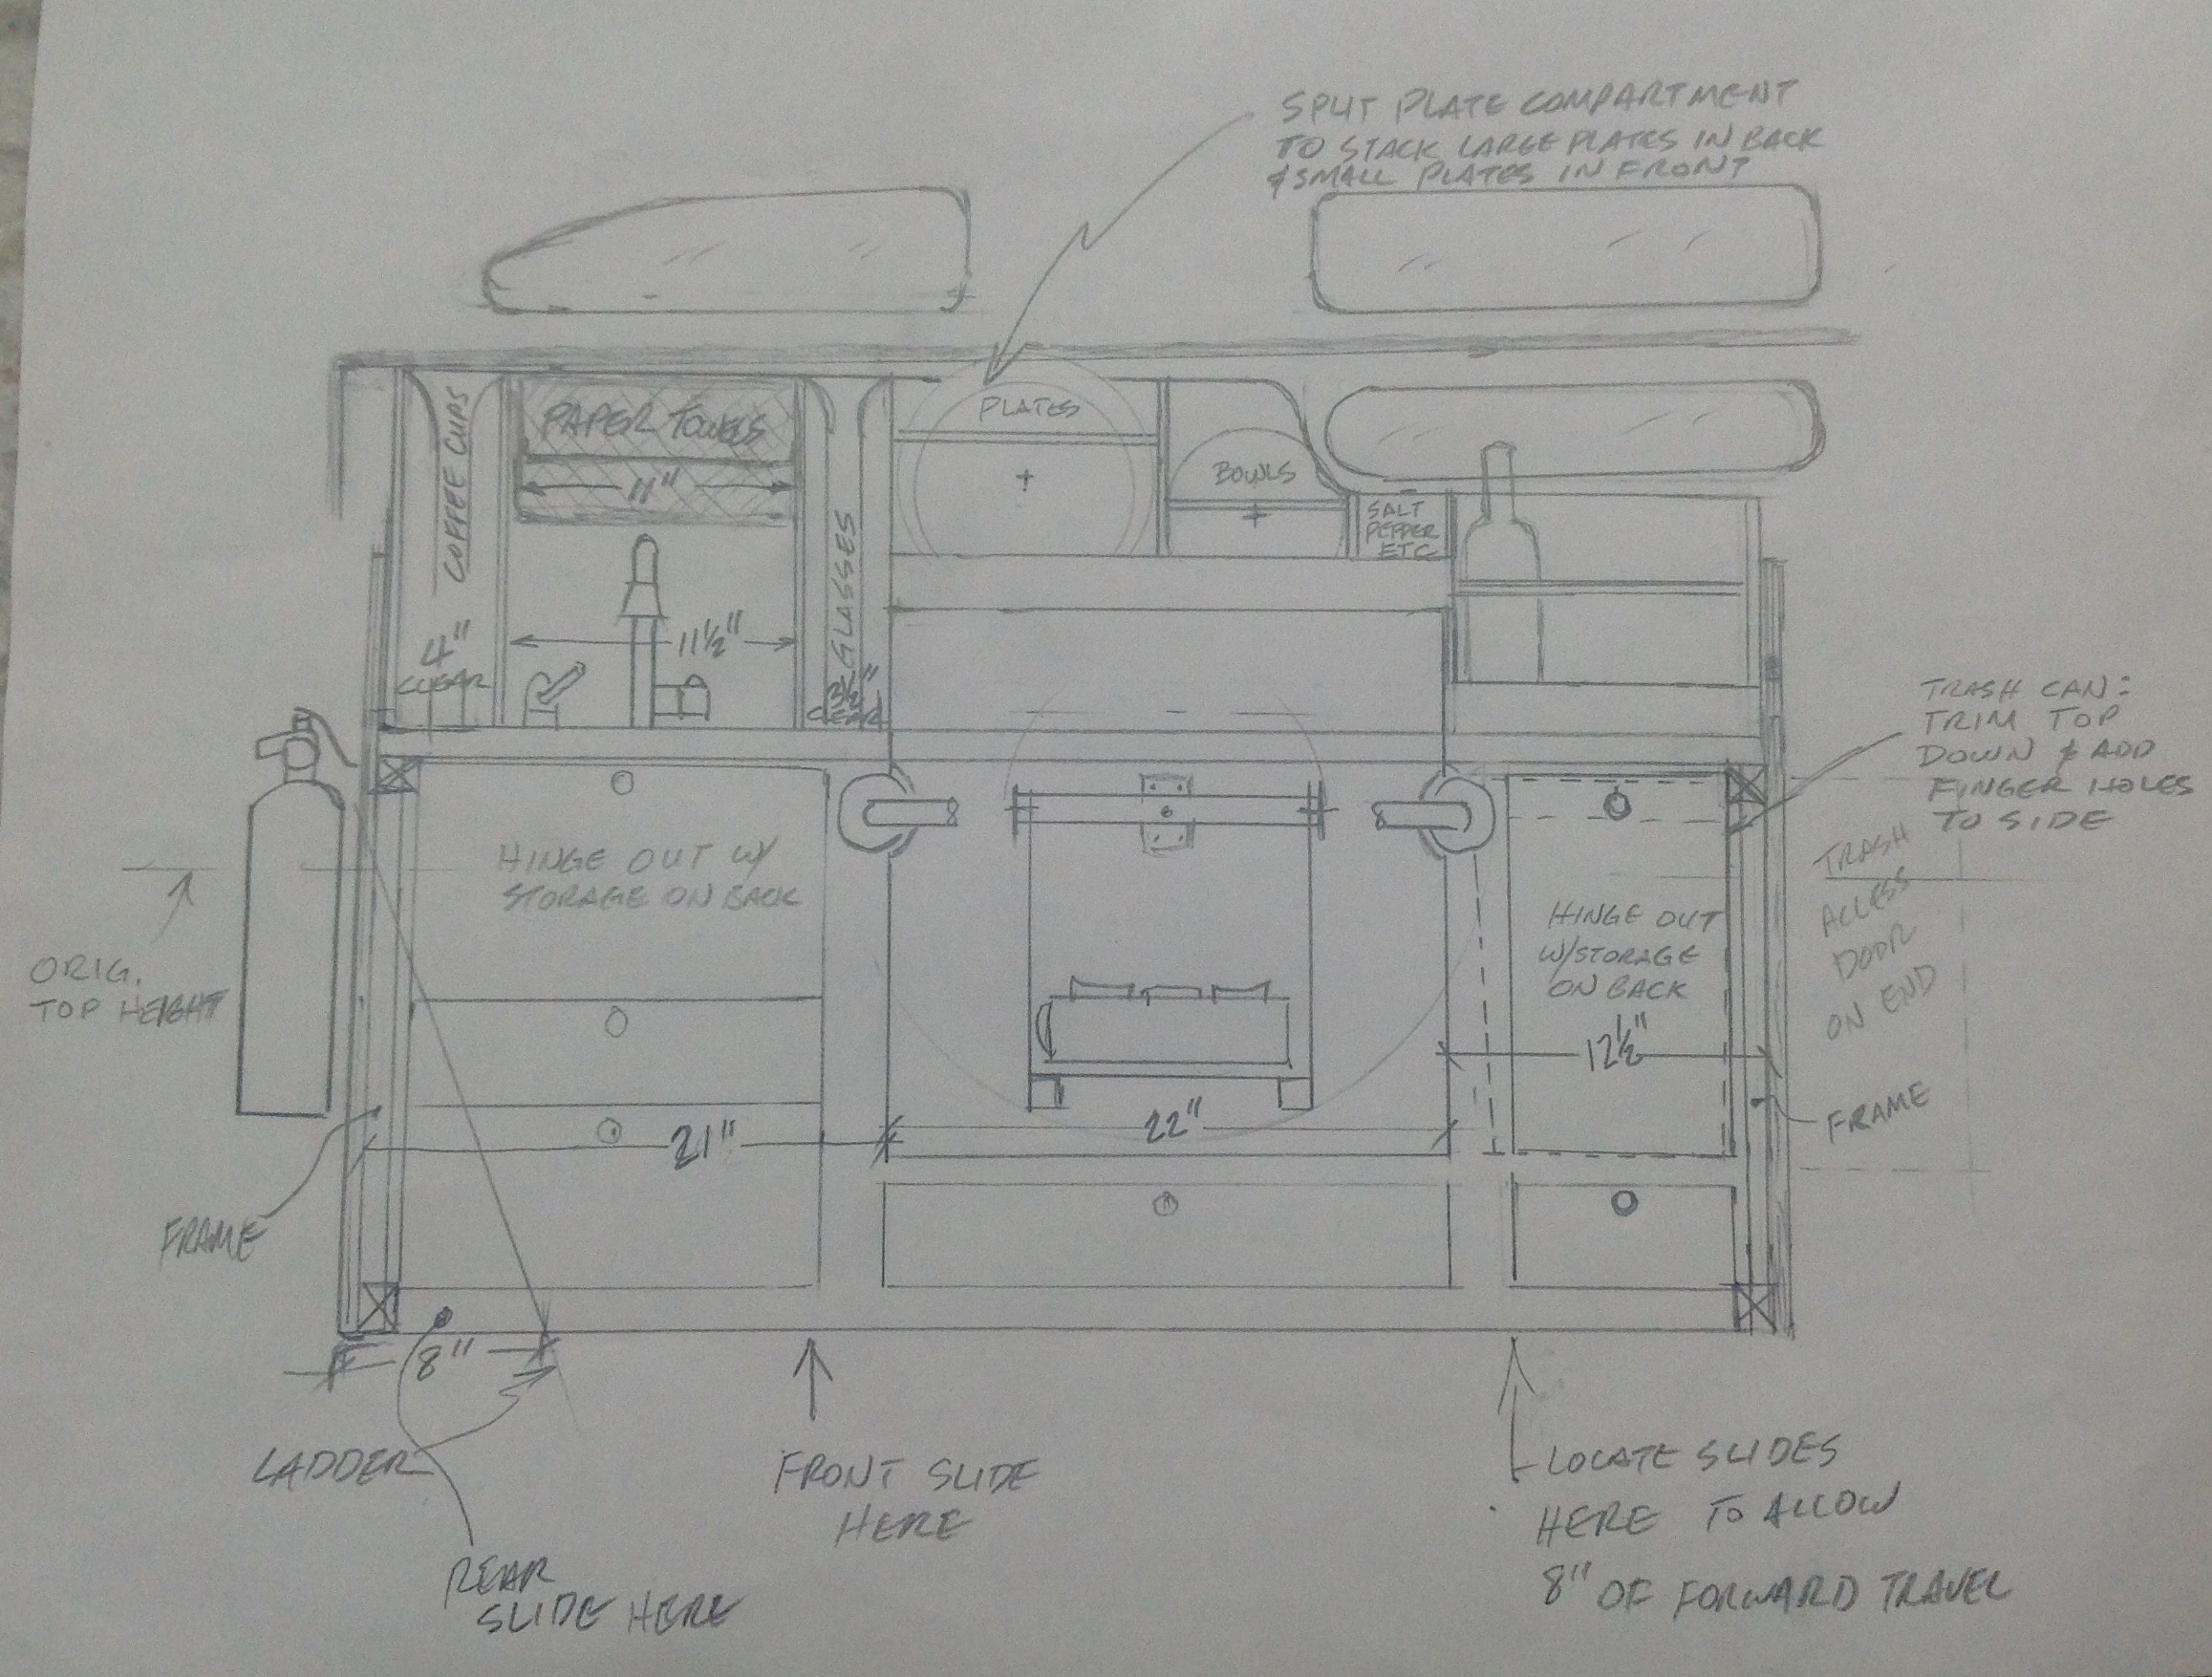 SPLIT PLATE COMPARTMENT
TO STACK LARGE PLATES IN BACK
& SMALL PLATES IN FRONT
COFFEE CUPS
PAPER TOWELS
11"
PLATES
BOWLS
SALT
PEPPER
ETC
GLASSES
4"
CLEAR
11½"
3½"
CLEAR
TRASH CAN:
TRIM TOP
DOWN & ADD
FINGER HOLES
TO SIDE
HINGE OUT W/
STORAGE ON BACK
TRASH
ACCESS
DOOR
ON END
HINGE OUT
W/STORAGE
ON BACK
ORIG.
TOP HEIGHT
12½"
21"
22"
FRAME
FRAME
8"
LADDER
FRONT SLIDE
HERE
LOCATE SLIDES
HERE TO ALLOW
8" OF FORWARD TRAVEL
REAR
SLIDE HERE